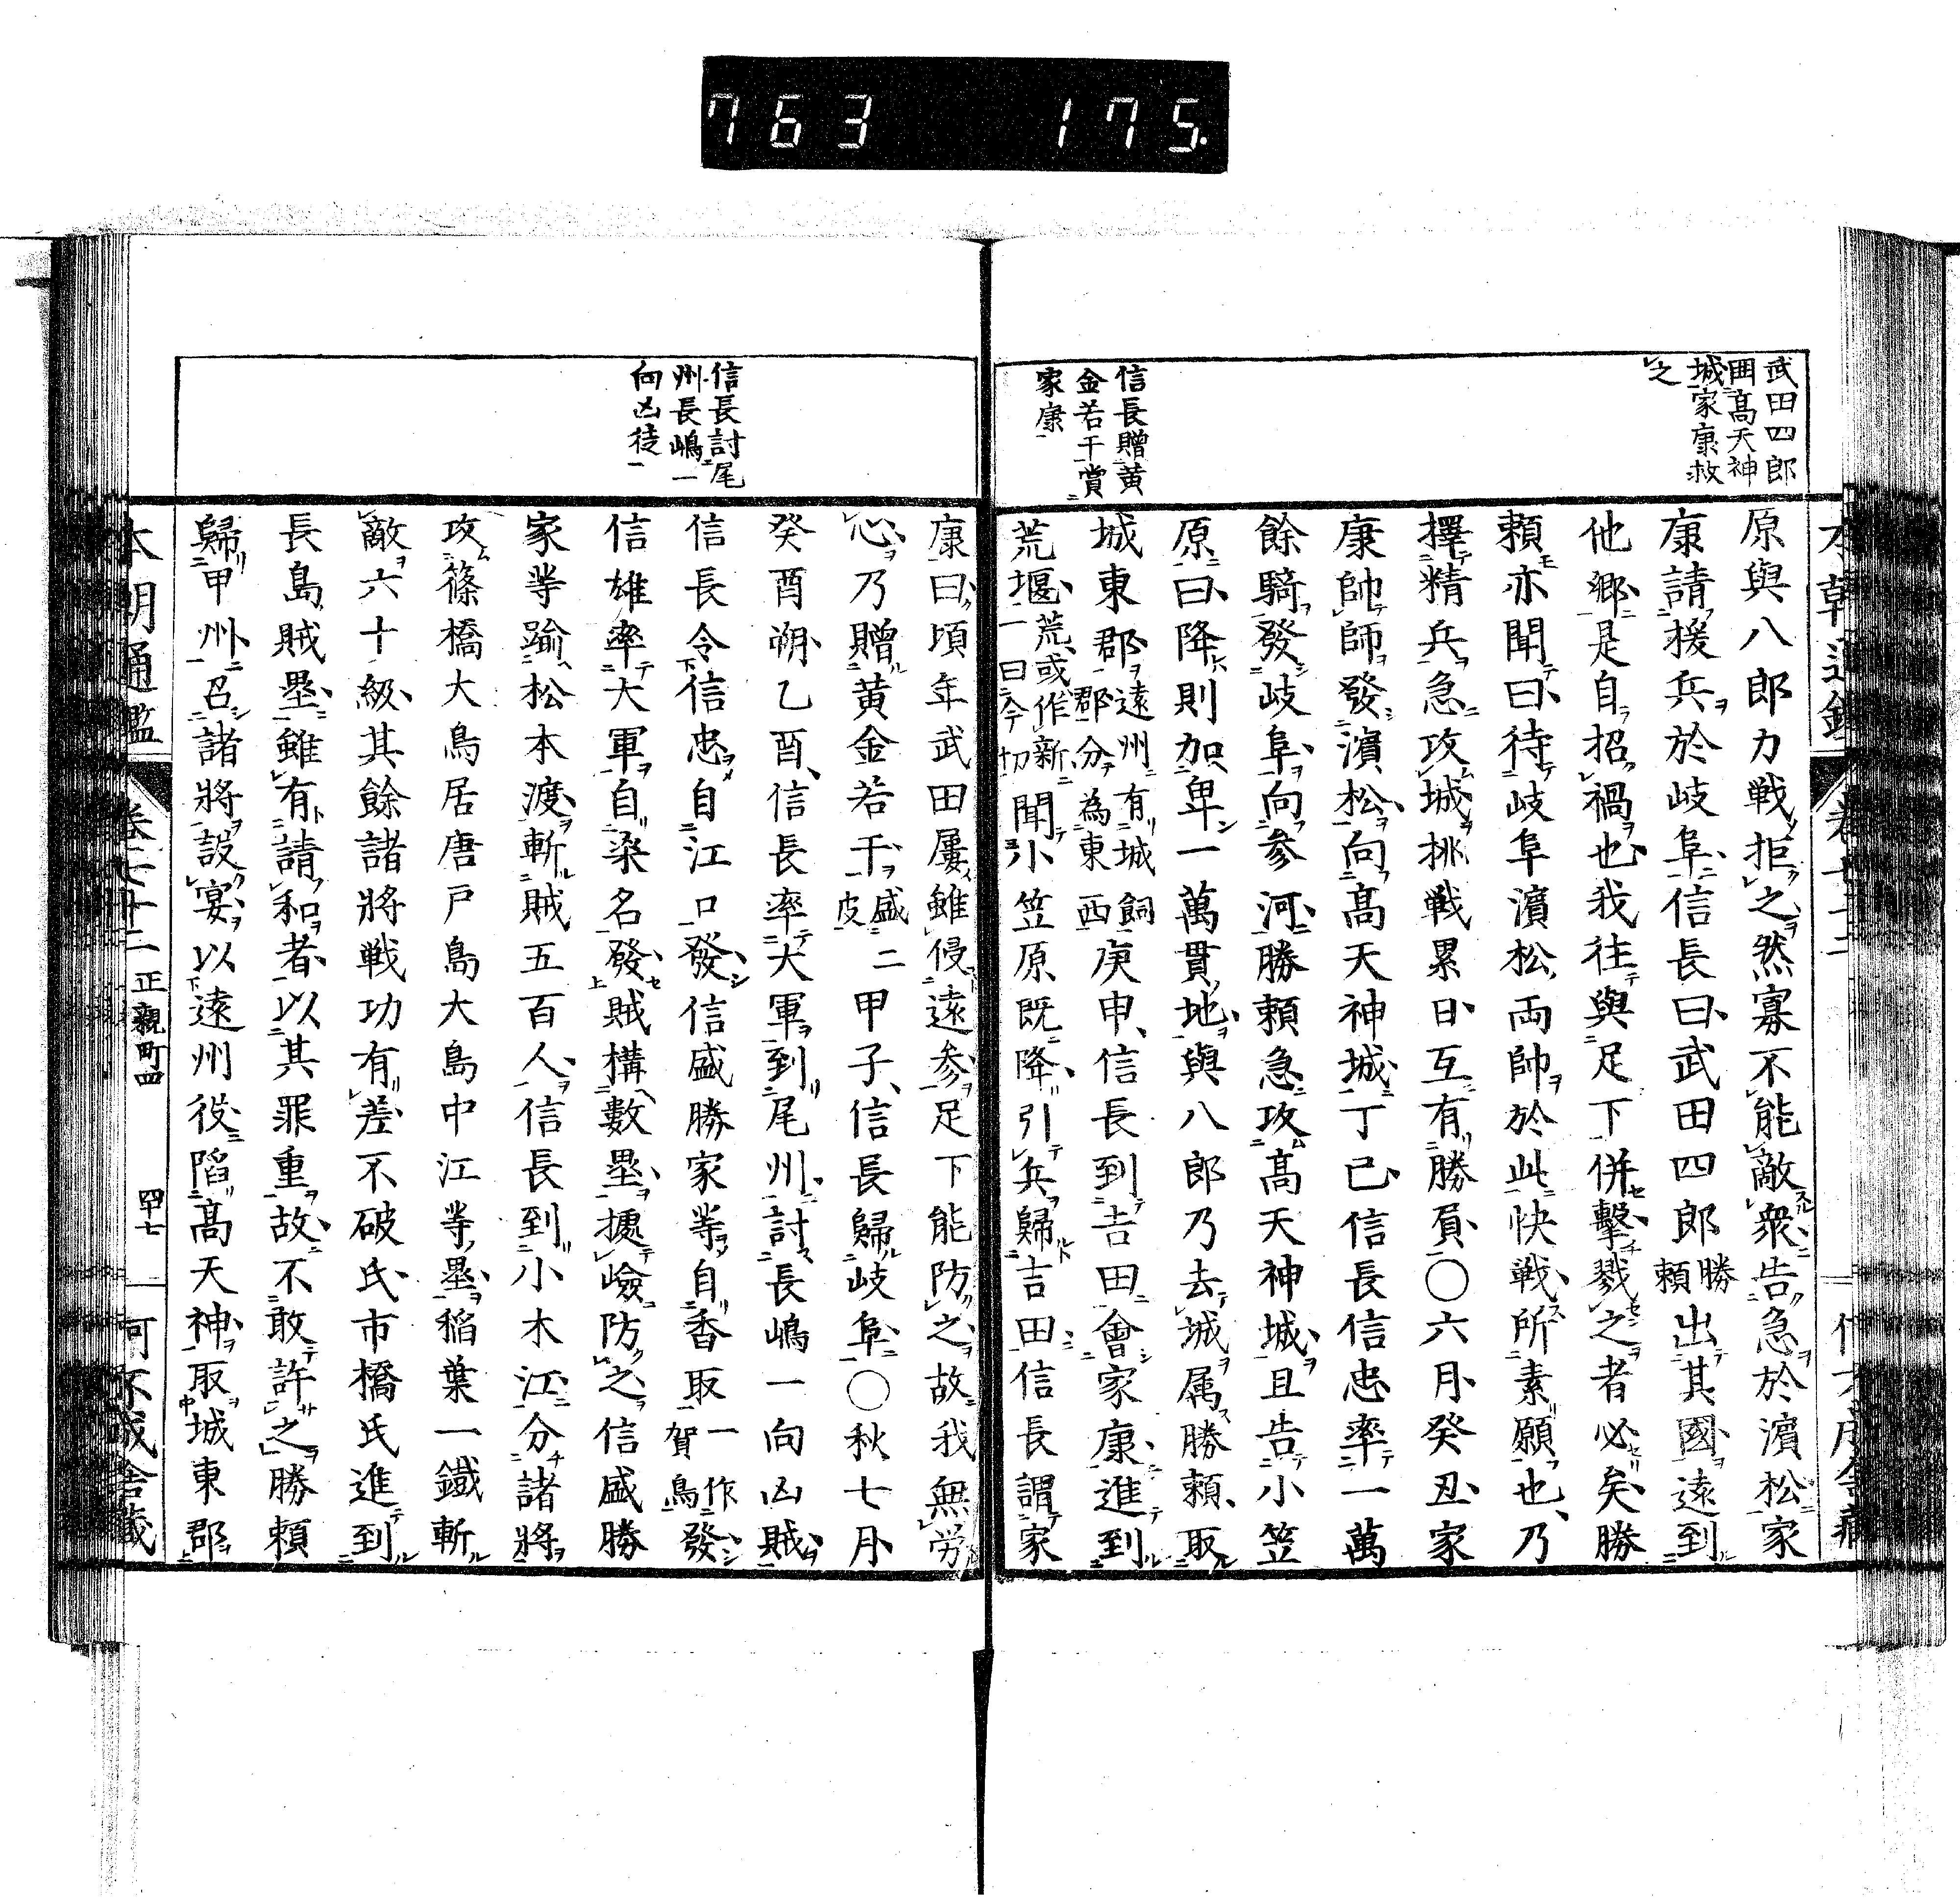 763 175.
武田四郎
囲高天神
城家康救
之
信長贈黄
金若干賞
家康
原與八郎力戦拒之然寡不能敵衆告急於濱松家
康請援兵於岐阜信長曰武田四郎勝頼出其國遠到
他郷是自招禍也我往與足下併擊戮之者必矣勝
頼亦聞曰待岐阜濱松両帥於此快戦所素願也乃
擇精兵急攻城挑戦累日互有勝負〇六月癸丑家
康帥師發濱松向高天神城丁巳信長信忠率一萬
餘騎發岐阜向參河勝頼急攻高天神城且告小笠
原曰降則加卑一萬貫地與八郎乃去城属勝頼取
城東郡遠州有城飼郡分為東西庚申信長到吉田會家康進到
荒堰荒或作新一曰今切聞小笠原既降引兵歸吉田信長謂家
本朝通鑑 卷七十二
信長討尾
州長嶋一
向凶徒
康曰頃年武田屢雖侵遠参足下能防之故我無労
心乃贈黄金若干盛二皮甲子信長歸岐阜〇秋七月
癸酉朔乙酉信長率大軍到尾州討長嶋一向凶賊
信長令信忠自江口發信盛勝家等自香取一作賀鳥發
信雄率大軍自桒名發賊構數壘據嶮防之信盛勝
家等踰松本渡斬賊五百人信長到小木江分諸將
攻篠橋大鳥居唐戸島大島中江等壘稲葉一鐡斬
敵六十級其餘諸將戦功有差不破氏市橋氏進到
長島賊壘雖有請和者以其罪重故不敢許之勝頼
歸甲州召諸將設宴以遠州役陷高天神取城東郡
本朝通鑑 卷七十二 正親町四 四十七